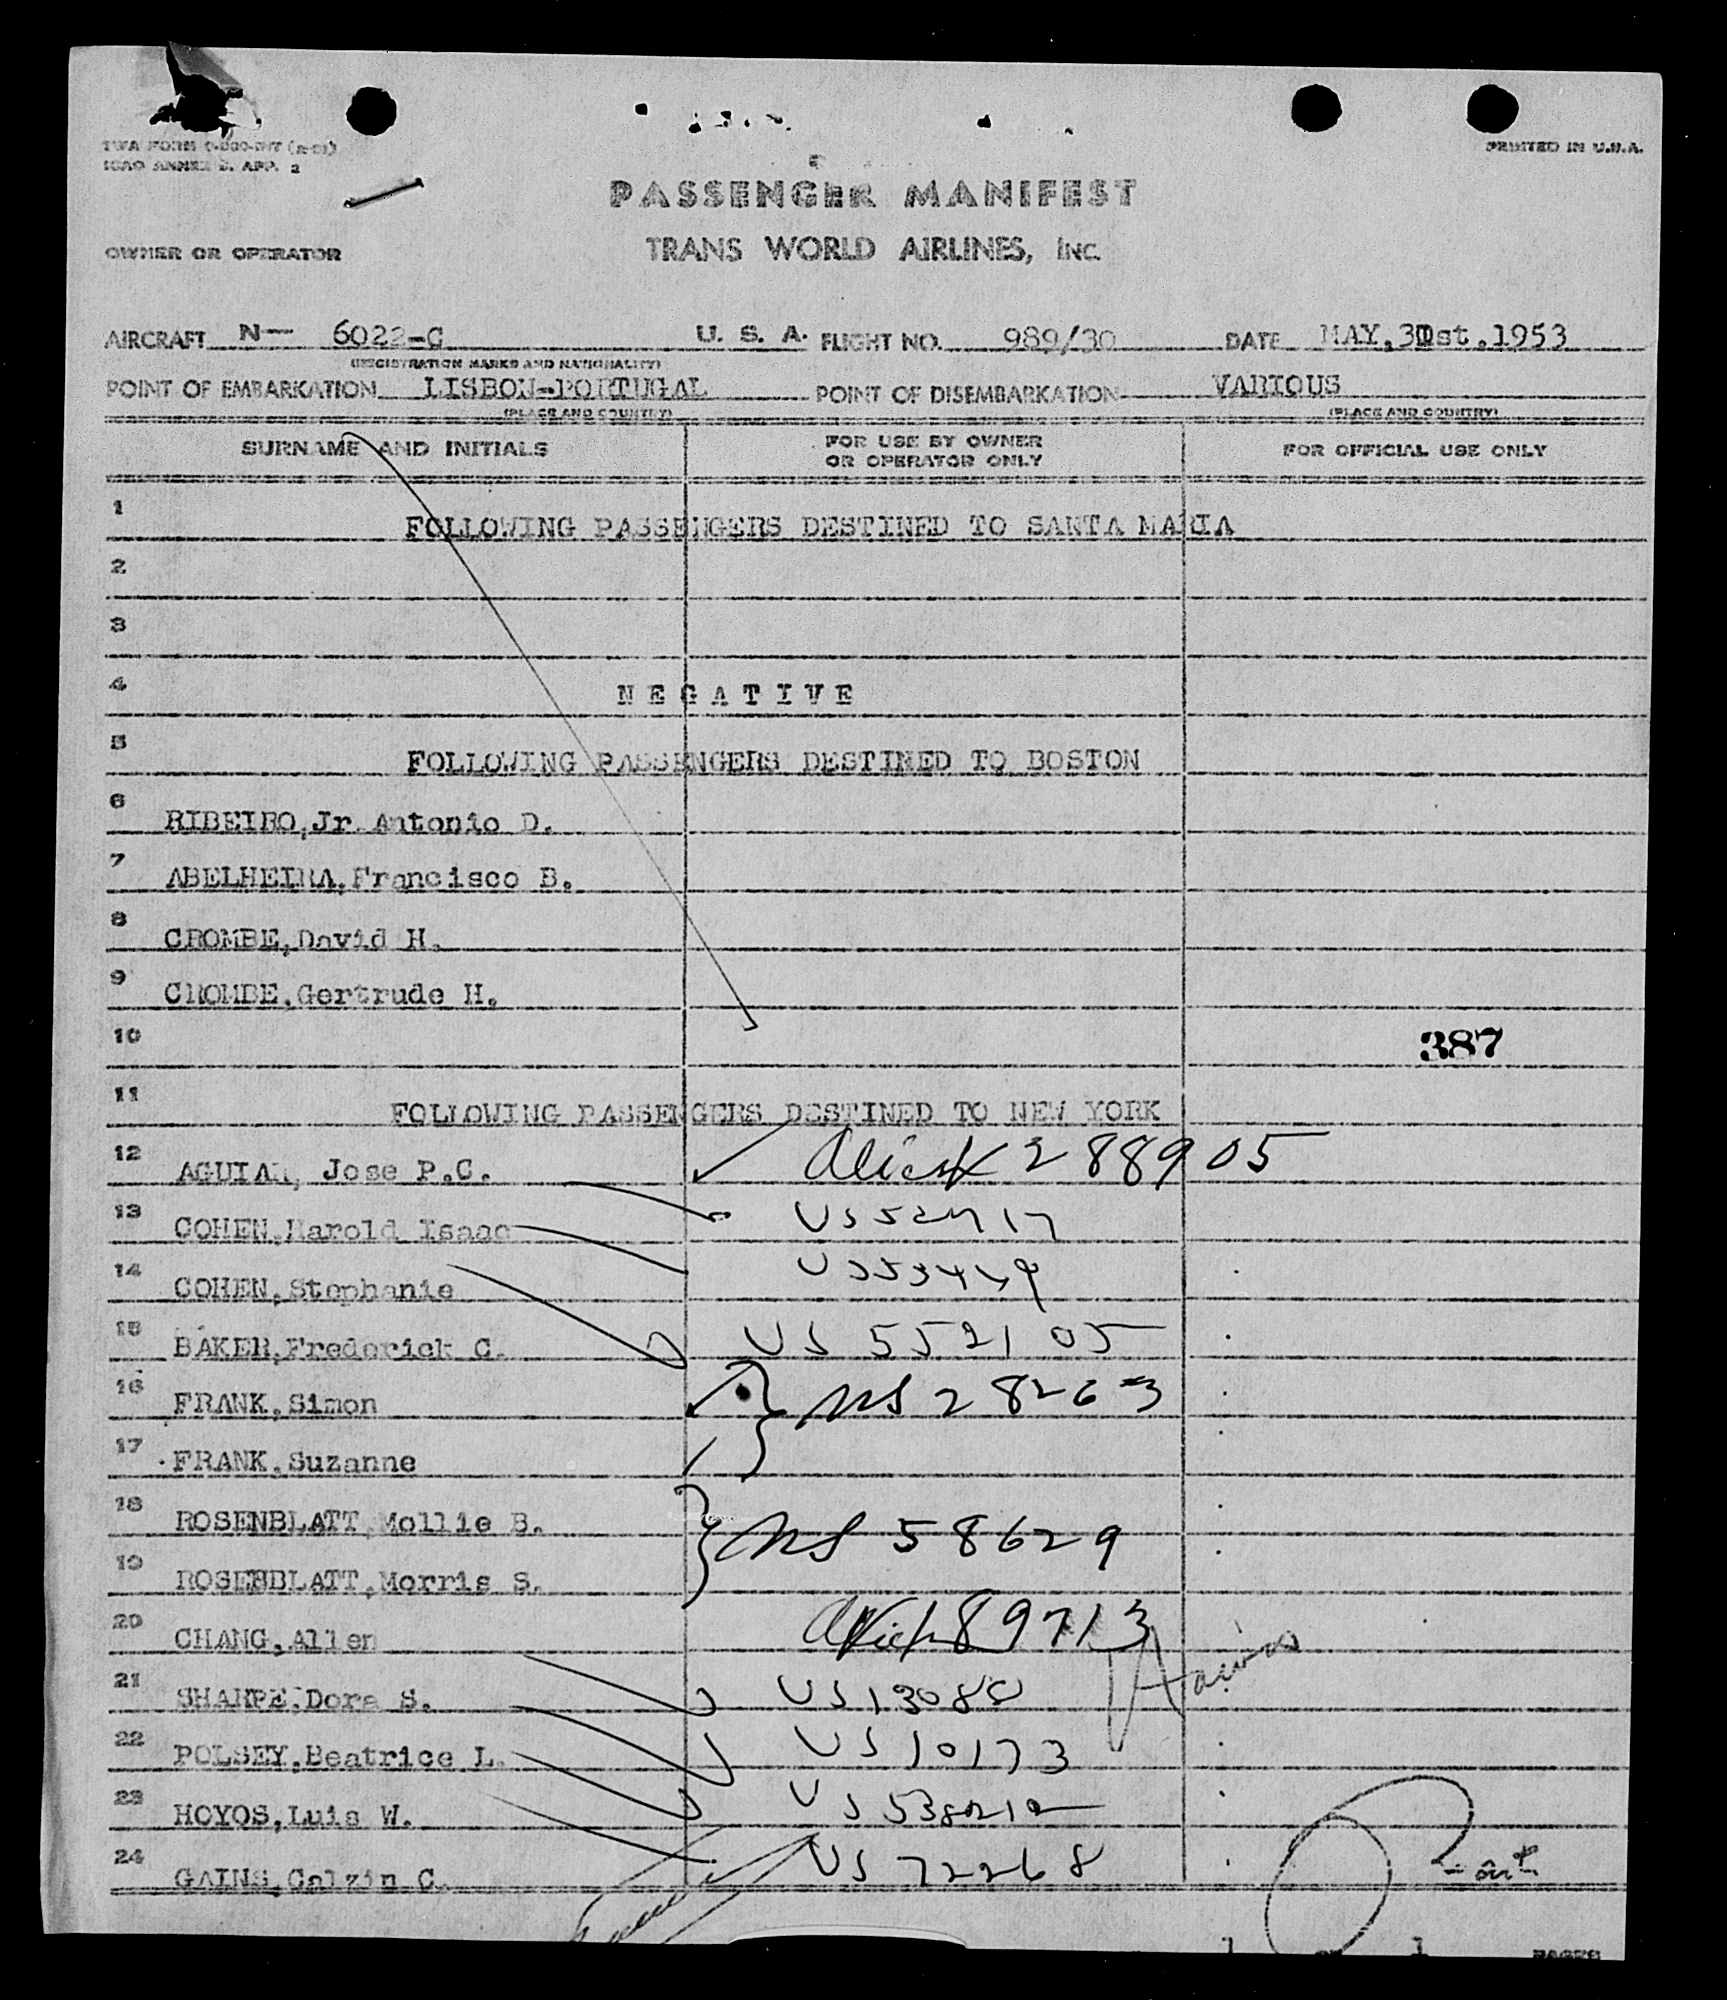 PRINTED IN U.S.A.
ICAO ANNEX 9. APP. 2
PASSENGER MANIFEST
OWNER OR OPERATOR TRANS WORLD AIRLINES, INC.
AIRCRAFT N— 6022-C U. S. A. FLIGHT NO. 989/30 DATE MAY, st. 1953
(REGISTRATION MARKS AND NATIONALITY)
POINT OF EMBARKATION LISBON-PORTUGAL POINT OF DISEMBARKATION VARIOUS
(PLACE AND COUNTRY) (PLACE AND COUNTRY)
SURNAME AND INITIALS FOR USE BY OWNER OR OPERATOR ONLY FOR OFFICIAL USE ONLY
1 FOLLOWING PASSENGERS DESTINED TO SANTA MARIA
2
3
4 NEGATIVE
5 FOLLOWING PASSENGERS DESTINED TO BOSTON
6 RIBEIRO, Jr. Antonio D.
7 ABELHEIRA, Francisco B.
8 CROMBE, David H.
9 CROMBE, Gertrude H.
10 387
11 FOLLOWING PASSENGERS DESTINED TO NEW YORK
12 AGUIAR, Jose P.C. 288905
13 COHEN, Harold Isaac
14 COHEN, Stephanie
15 BAKER, Frederick C. US 552105
16 FRANK, Simon US 28263
17 FRANK, Suzanne
18 ROSENBLATT, Mollie B. US 58629
19 ROSENBLATT, Morris S.
20 CHANG, Allen 89713
21 SHARPE, Dora S. US 13088
22 POLSEY, Beatrice L. US 10173
23 HOYOS, Luis W.
24 GAINS, Calzin C. US 72268
1 OF 1 PAGES